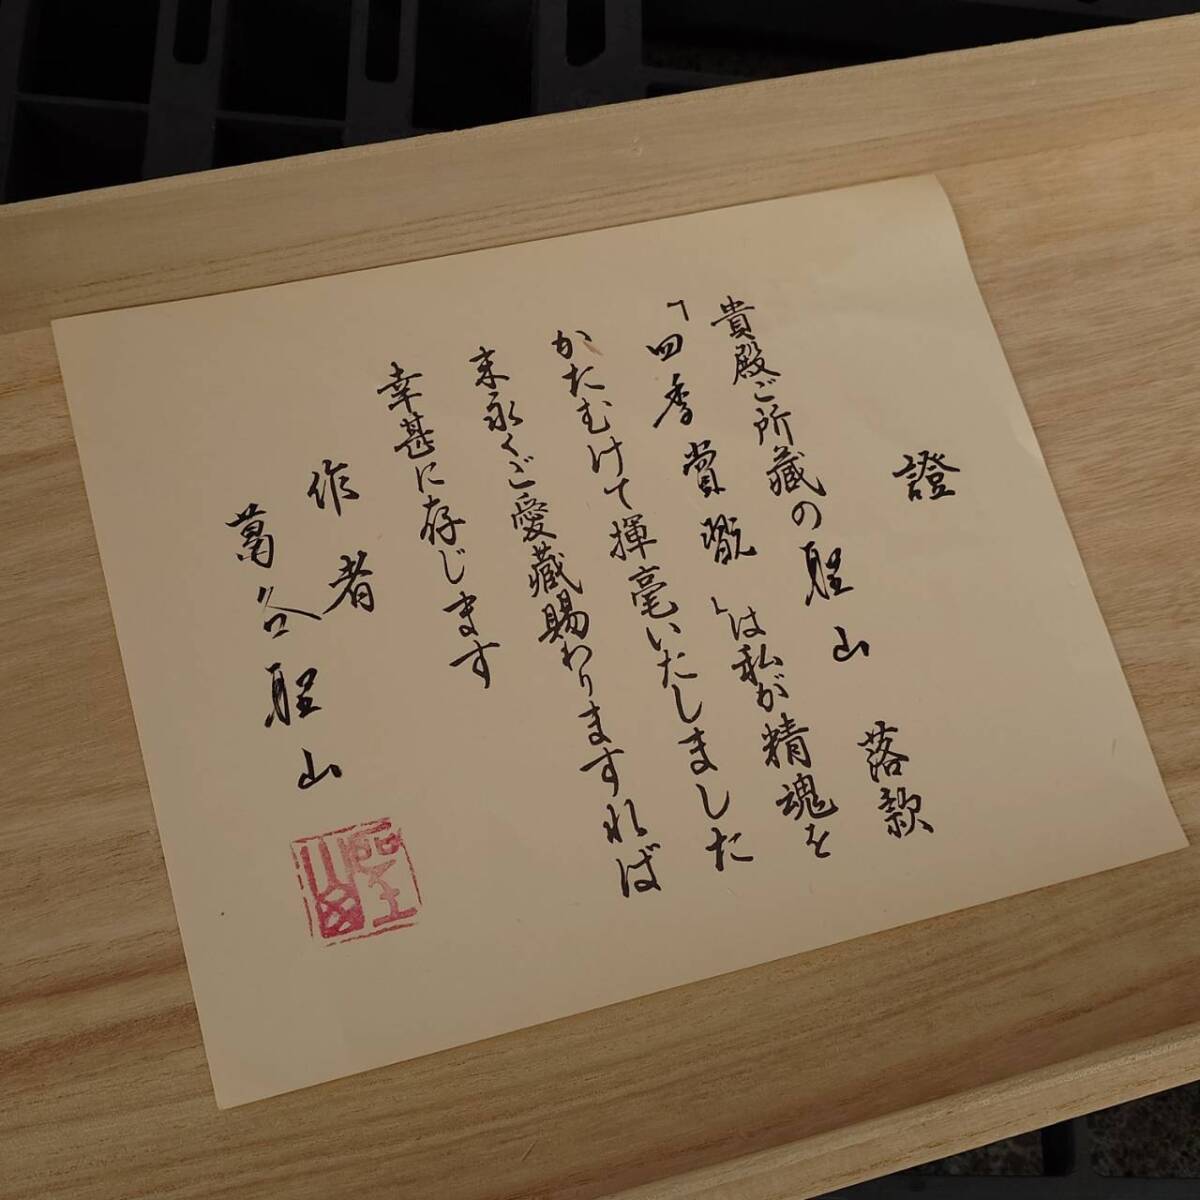 證
貴殿ご所藏の聖山 落款
「四季賞翫」は私が精魂を
かたむけて揮毫いたしました
末永くご愛藏賜わりますれば
幸甚に存じます
作者
萬谷聖山
聖山